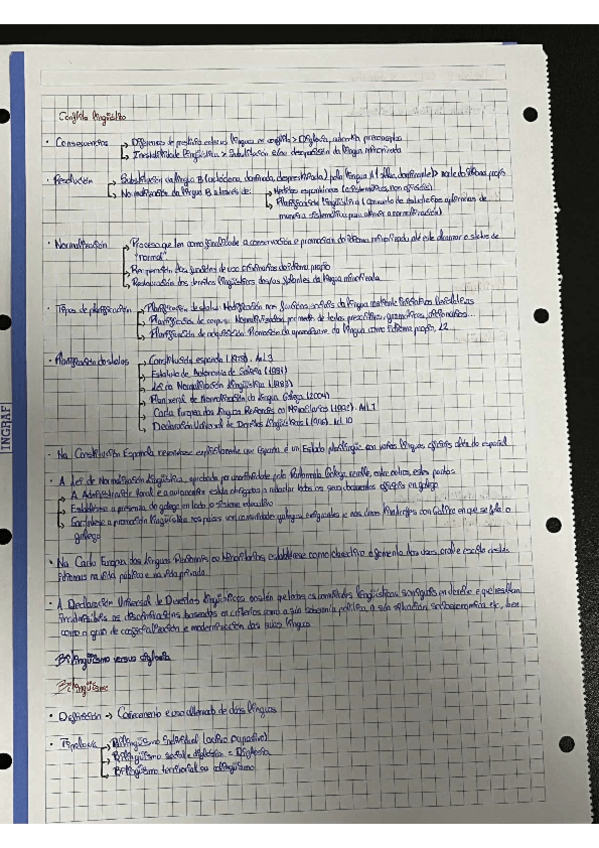 Conflito lingüístico
· Consecuencias → Diferenzas de prestixio entre as linguas en conflito > Diglosia, autoodio, prexuízos
↳ Inestabilidade lingüística > Substitución e/ou desaparición da lingua minorizada
· Resolución → Substitución da lingua B (autóctona, dominada, desprestixiada) pola lingua A (dominante) > morte do idioma propio
↳ Normalización da lingua B a través de: → Medidas espontáneas (asistemáticas, non oficiais)
↳ Planificación lingüística (Conxunto de medidas que se aplican de
maneira sistemática para alcanzar a normalización)
· Normalización → Proceso que ten como finalidade a conservación e promoción do idioma minorizado até este alcanzar o status de
"normal"
↳ Recuperación dos ámbitos de uso prioritarios do idioma propio
↳ Restauración dos dereitos lingüísticos dos/as falantes da lingua minorizada
· Tipos de planificación → Planificación do status.
↳ Planificación do corpus.
↳ Planificación de adquisición. Promoción da aprendizaxe da lingua como idioma propio, L2
· Planificación do status → Constitución española (1978). Art. 3
↳ Estatuto de Autonomía de Galicia (1981)
↳ Lei de Normalización Lingüística (1983)
↳ Plan xeral de Normalización da Lingua Galega (2004)
↳ Carta Europea das Linguas Rexionais ou Minoritarias (1992). Art. 7
↳ Declaración Universal de Dereitos Lingüísticos (1996). Art. 10
· Na Constitución Española recoñécese explicitamente que España é un Estado plurilingüe con varias linguas oficiais além do español
· A Lei de Normalización Lingüística, aprobada por unanimidade polo Parlamento Galego recolle, entre outros, estes puntos:
↳ A Administración local e a autonómica están obrigadas a redactar todos os seus documentos oficiais en galego
↳ Establécese a presenza do galego en todo o sistema educativo
↳ Fortalece a promoción lingüística nos países con comunidades galegas emigradas e nas zonas limítrofes con Galicia en que se fala o
galego
· Na Carta Europea das Linguas Rexionais ou Minoritarias establécese como obxectivo o fomento dos usos oral e escrito destes
idiomas na vida pública e na vida privada
· A Declaración Universal de Dereitos Lingüísticos sostén que todas as comunidades lingüísticas son iguais en dereito e que resultan
inadmisibles as discriminacións baseadas en criterios como a súa soberanía política, a súa situación socioeconómica etc., bem
como o grao de codificación e modernización das súas linguas
Bilingüismo versus diglosia
Bilingüismo
· Definición → Coñecemento e uso alternado de dúas linguas
· Tipoloxía → Bilingüismo individual (activo ou pasivo)
↳ Bilingüismo social e diglósico = Diglosia
↳ Bilingüismo territorial ou colingüismo
INGRAF